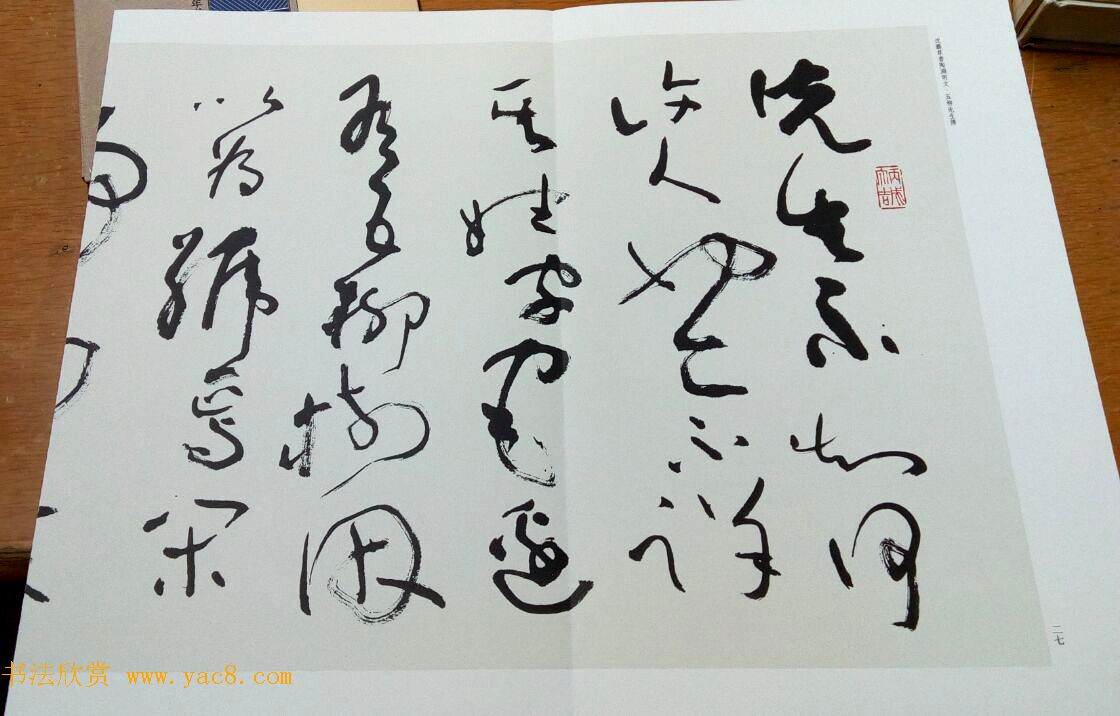 沈鵬草書陶淵明文·五柳先生傳
先生不知何
許人也亦不詳
其姓字宅邊
有五柳樹因
以為號焉閑
丙戌大吉
二七
书法欣赏 www.yac8.com